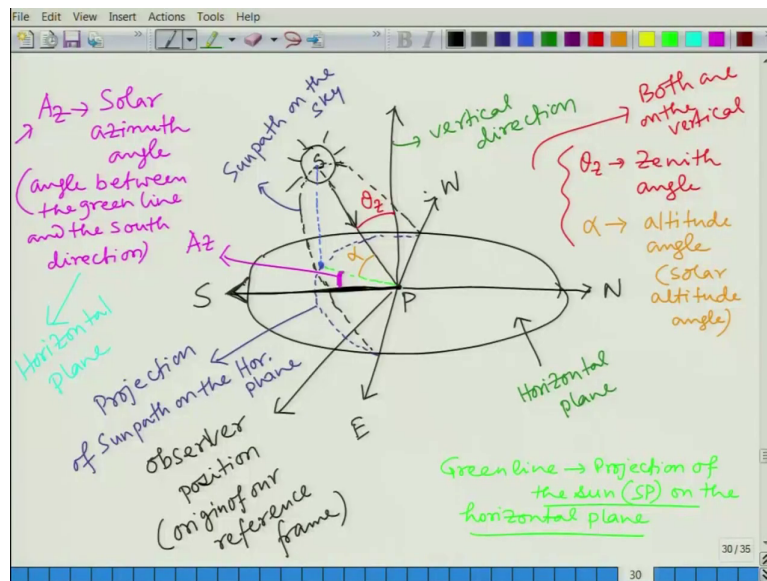 File Edit View Insert Actions Tools Help
B I
Az → Solar
azimuth
angle
(angle between
the green line
and the south
direction)
Horizontal
plane
Sunpath on the
sky
S
θz
α
vertical
direction
W
Both are
on the
vertical
θz → Zenith
angle
α → altitude
angle
(solar
altitude
angle)
Az
S
P
N
E
Projection
of Sunpath on the Hor.
plane
observer
position
(origin of our
reference
frame)
Horizontal
plane
Green line → Projection of
the sun (SP) on the
horizontal plane
30/35
30